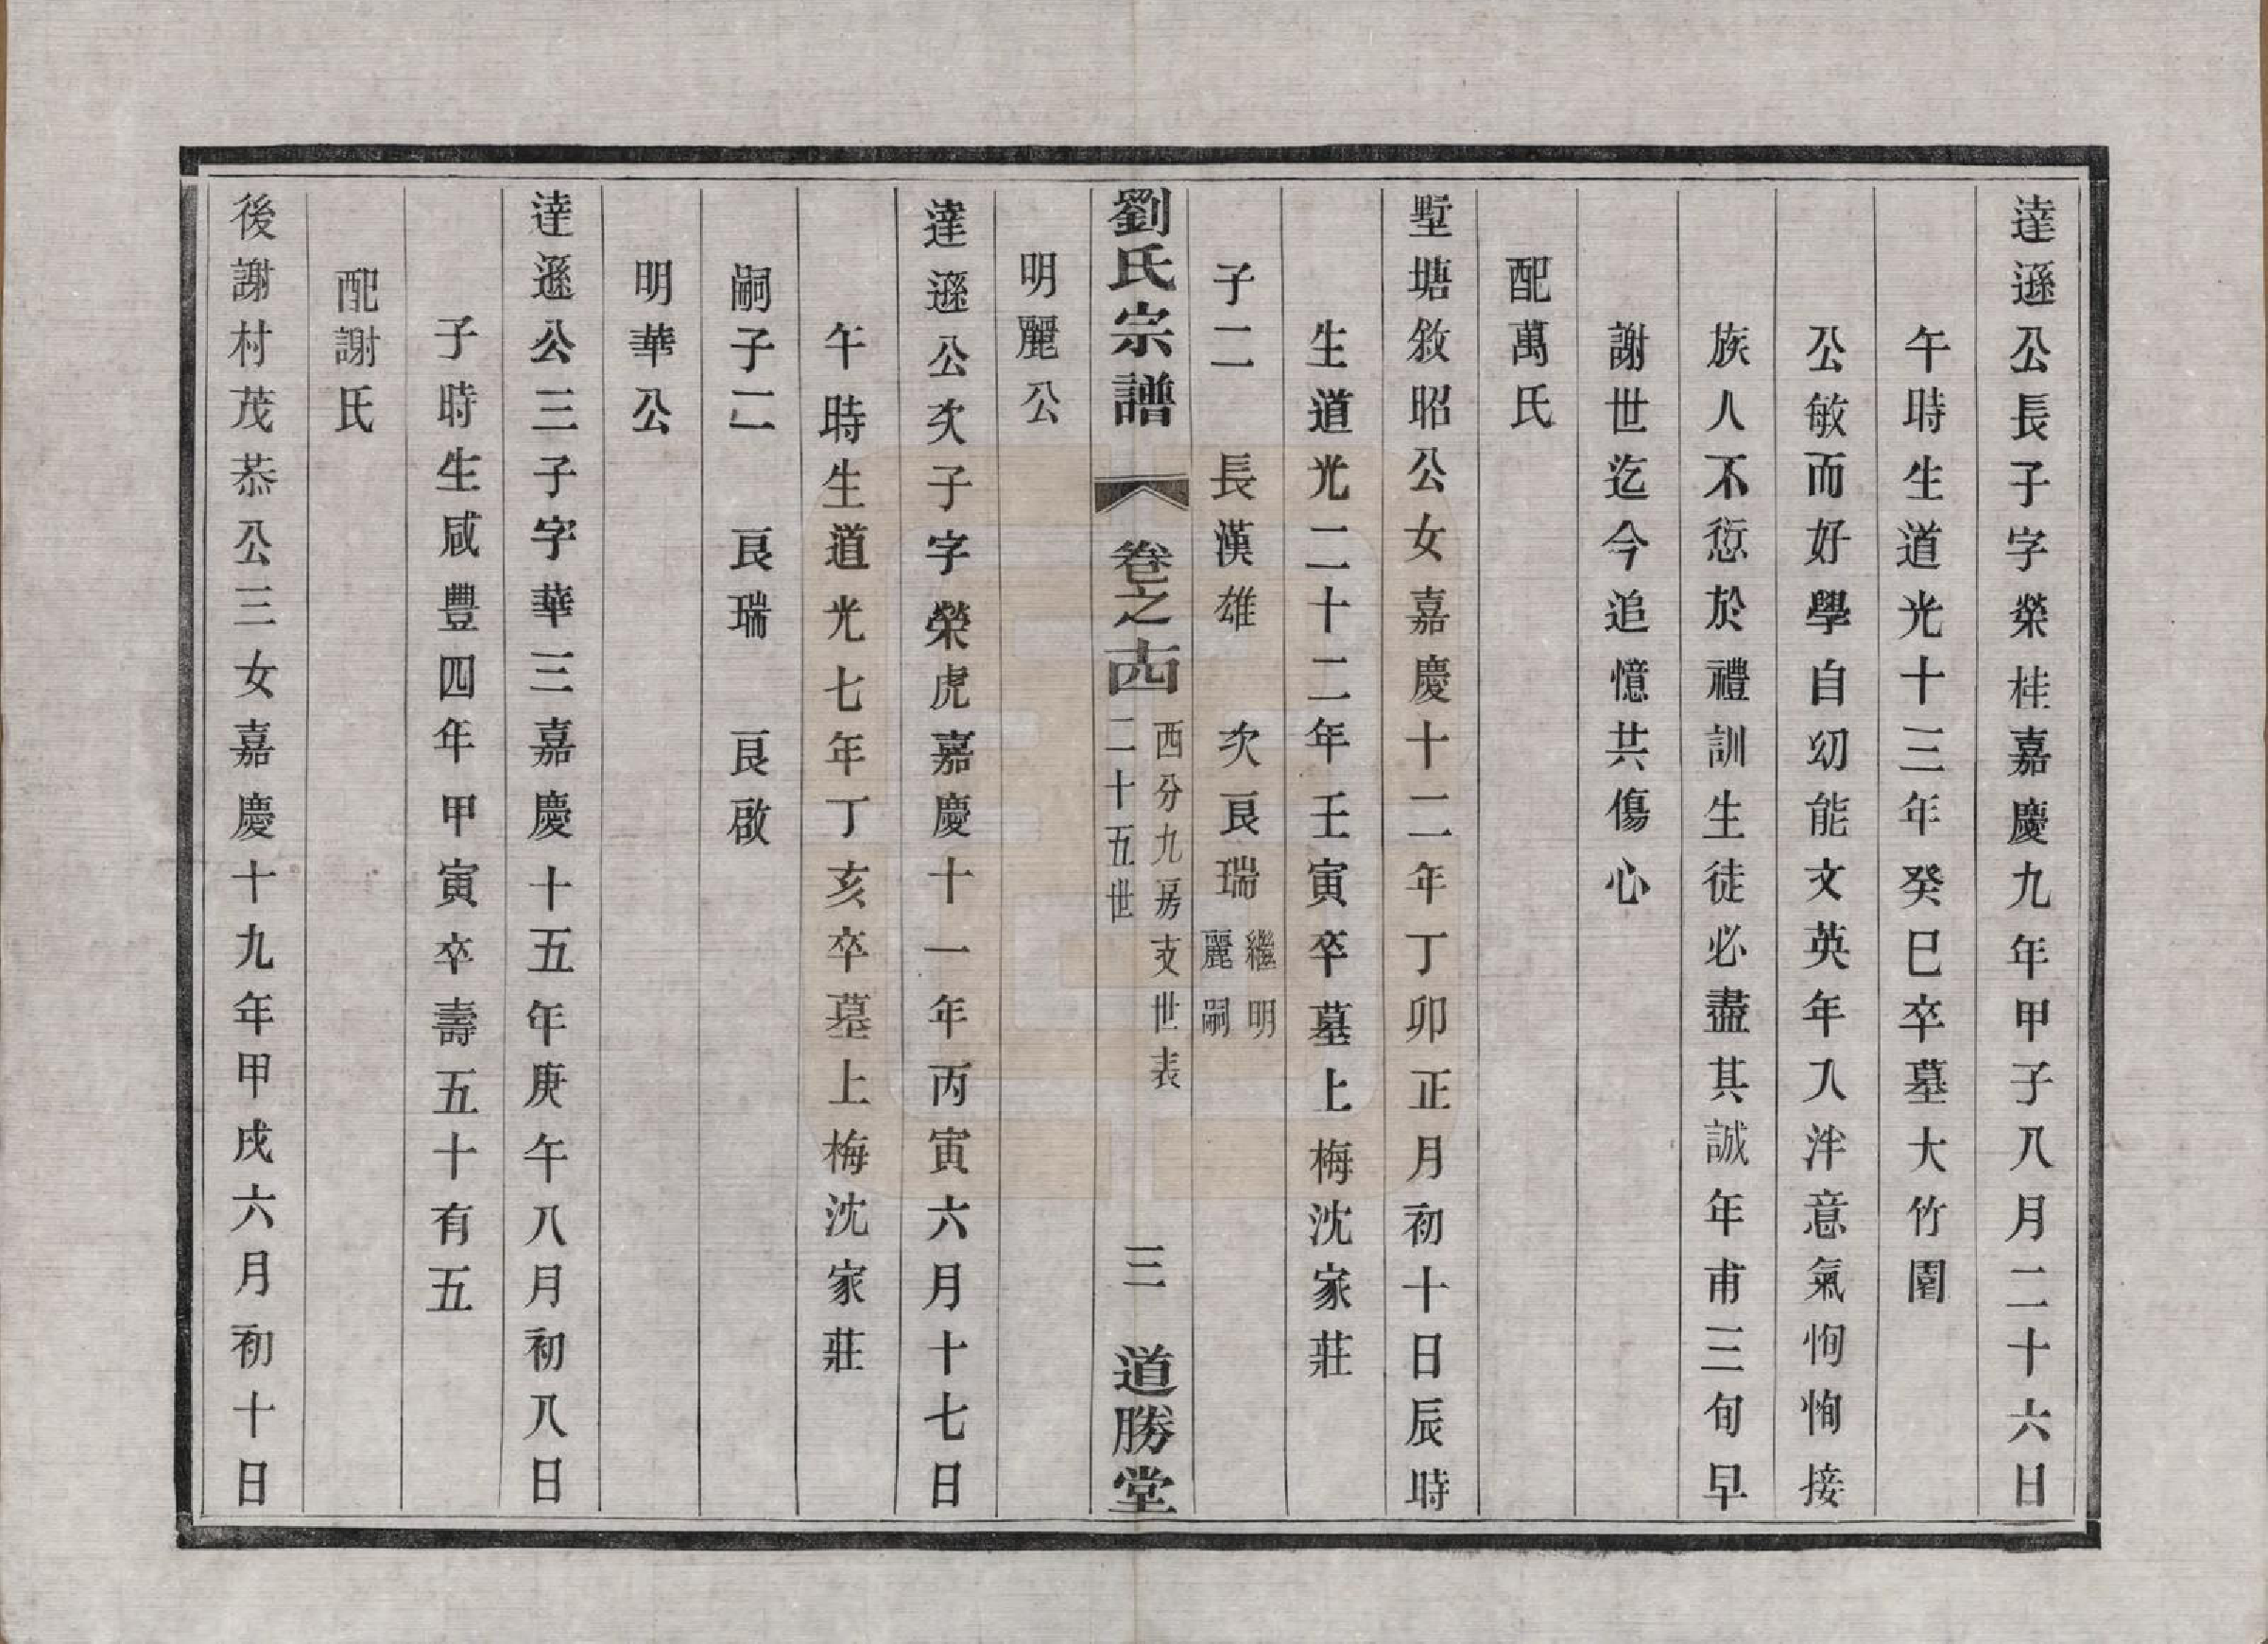 達遜公長子字榮桂嘉慶九年甲子八月二十六日
午時生道光十三年癸巳卒墓大竹園
公敏而好學自幼能文英年入泮意氣恂恂接
族人不愆於禮訓生徒必盡其誠年甫三旬早
謝世迄今追憶共傷心
配萬氏
墅塘敘昭公女嘉慶十二年丁卯正月初十日辰時
生道光二十二年壬寅卒墓上梅沈家莊
子二 長漢雄 次良瑞 繼明麗嗣
劉氏宗譜 卷之西 西分九房支世表 二十五世 三 道勝堂
明麗公
達遜公次子字榮虎嘉慶十一年丙寅六月十七日
午時生道光七年丁亥卒墓上梅沈家莊
嗣子二 良瑞 良啟
明華公
達遜公三子字華三嘉慶十五年庚午八月初八日
子時生咸豐四年甲寅卒壽五十有五
配謝氏
後謝村茂恭公三女嘉慶十九年甲戌六月初十日